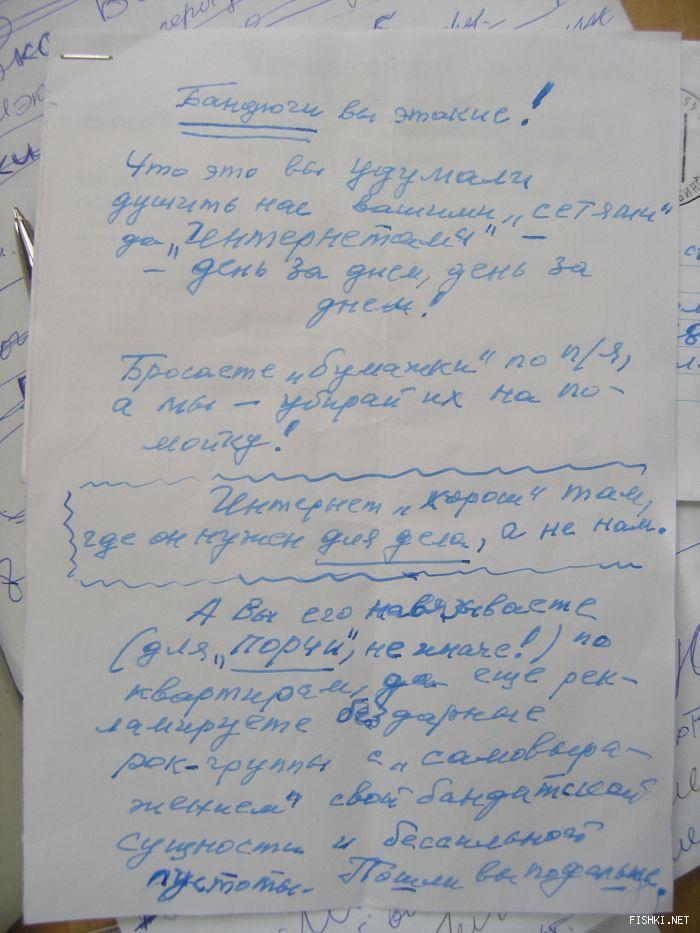 Бандюги вы этакие!
Что это вы удумали
душить нас вашими „сетями"
да „Интернетами" –
– день за днем, день за
днем!
Бросаете „бумажки" по п/я,
а мы – убирай их на по-
мойку!
Интернет „хорош" там,
где он нужен для дела, а не нам.
А Вы его навязываете
(для „порчи", не иначе!) по
квартирам, да еще рек-
ламируете бездарные
рок-группы с „самовыра-
жением" свой бандитской
сущности и бессильной
пустоты. Пошли вы подальше,
FISHKI.NET